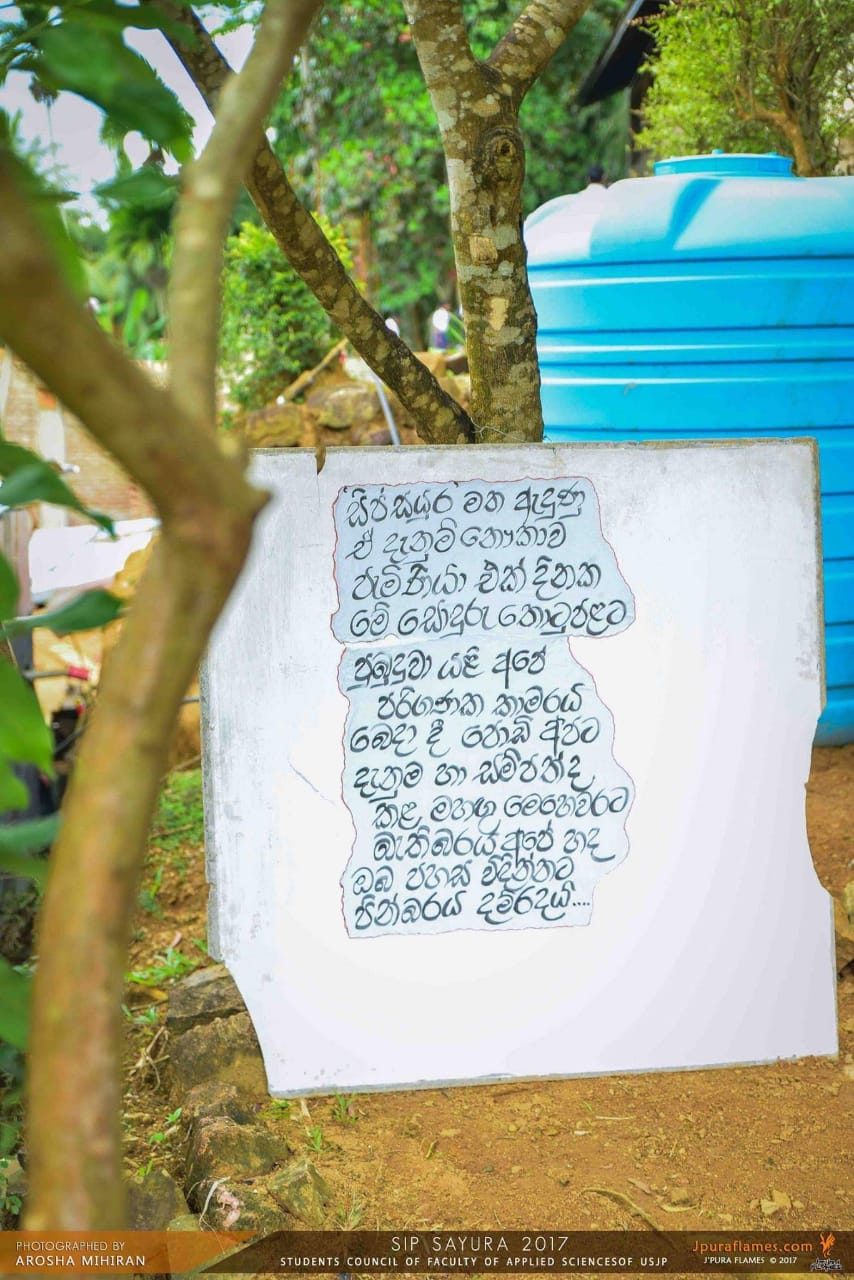 'සිප් සයුර' මත ඇදුණු
ඒ දැනුම් නෞකාව
පැමිණියා එක් දිනක
මේ සොඳුරු තොටුපළට
පුබුදුවා යළි අපේ
පරිගණක කාමරයි
බෙදා දී පොඩි අපට
දැනුම හා සම්පත්ද
කළ මහඟු මෙහෙවරට
බැතිබරයි අපේ හද
ඔබ පහස විදින්නට
පින්බරය දම්රදයි....
PHOTOGRAPHED BY
AROSHA MIHIRAN
SIP SAYURA 2017
STUDENTS COUNCIL OF FACULTY OF APPLIED SCIENCESOF USJP
Jpuraflames.com
J'PURA FLAMES © 2017